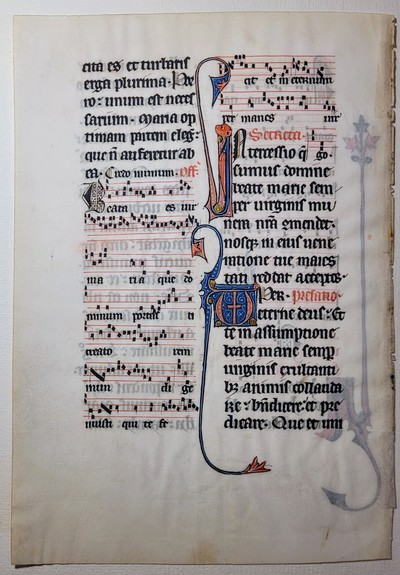 cita es et turbaris
erga plurima. Por
ro: unum est neces
sarium. maria op
timam partem eleg:
que nõ auferetur ab
ea. Credo in unum. Off.
Beata es vir
ma ria que do
minum portas ti
creato rem
mun di ge
nuisti qui te fe
cit et in eternum
per manes vir
Secreta.
Intercessio q̃s
sumus domine
beate marie sem
per virginis mu
nera nr̃a 
nosq; in eius vene
ratione tue maies
tati reddat acceptos.
Per. Prefatio.
Eterne deus: Et
te in assumptione
beate marie semp
virginis exultanti
bz animis collauda
re. bñdicere. et pre
dicare. Que et uni